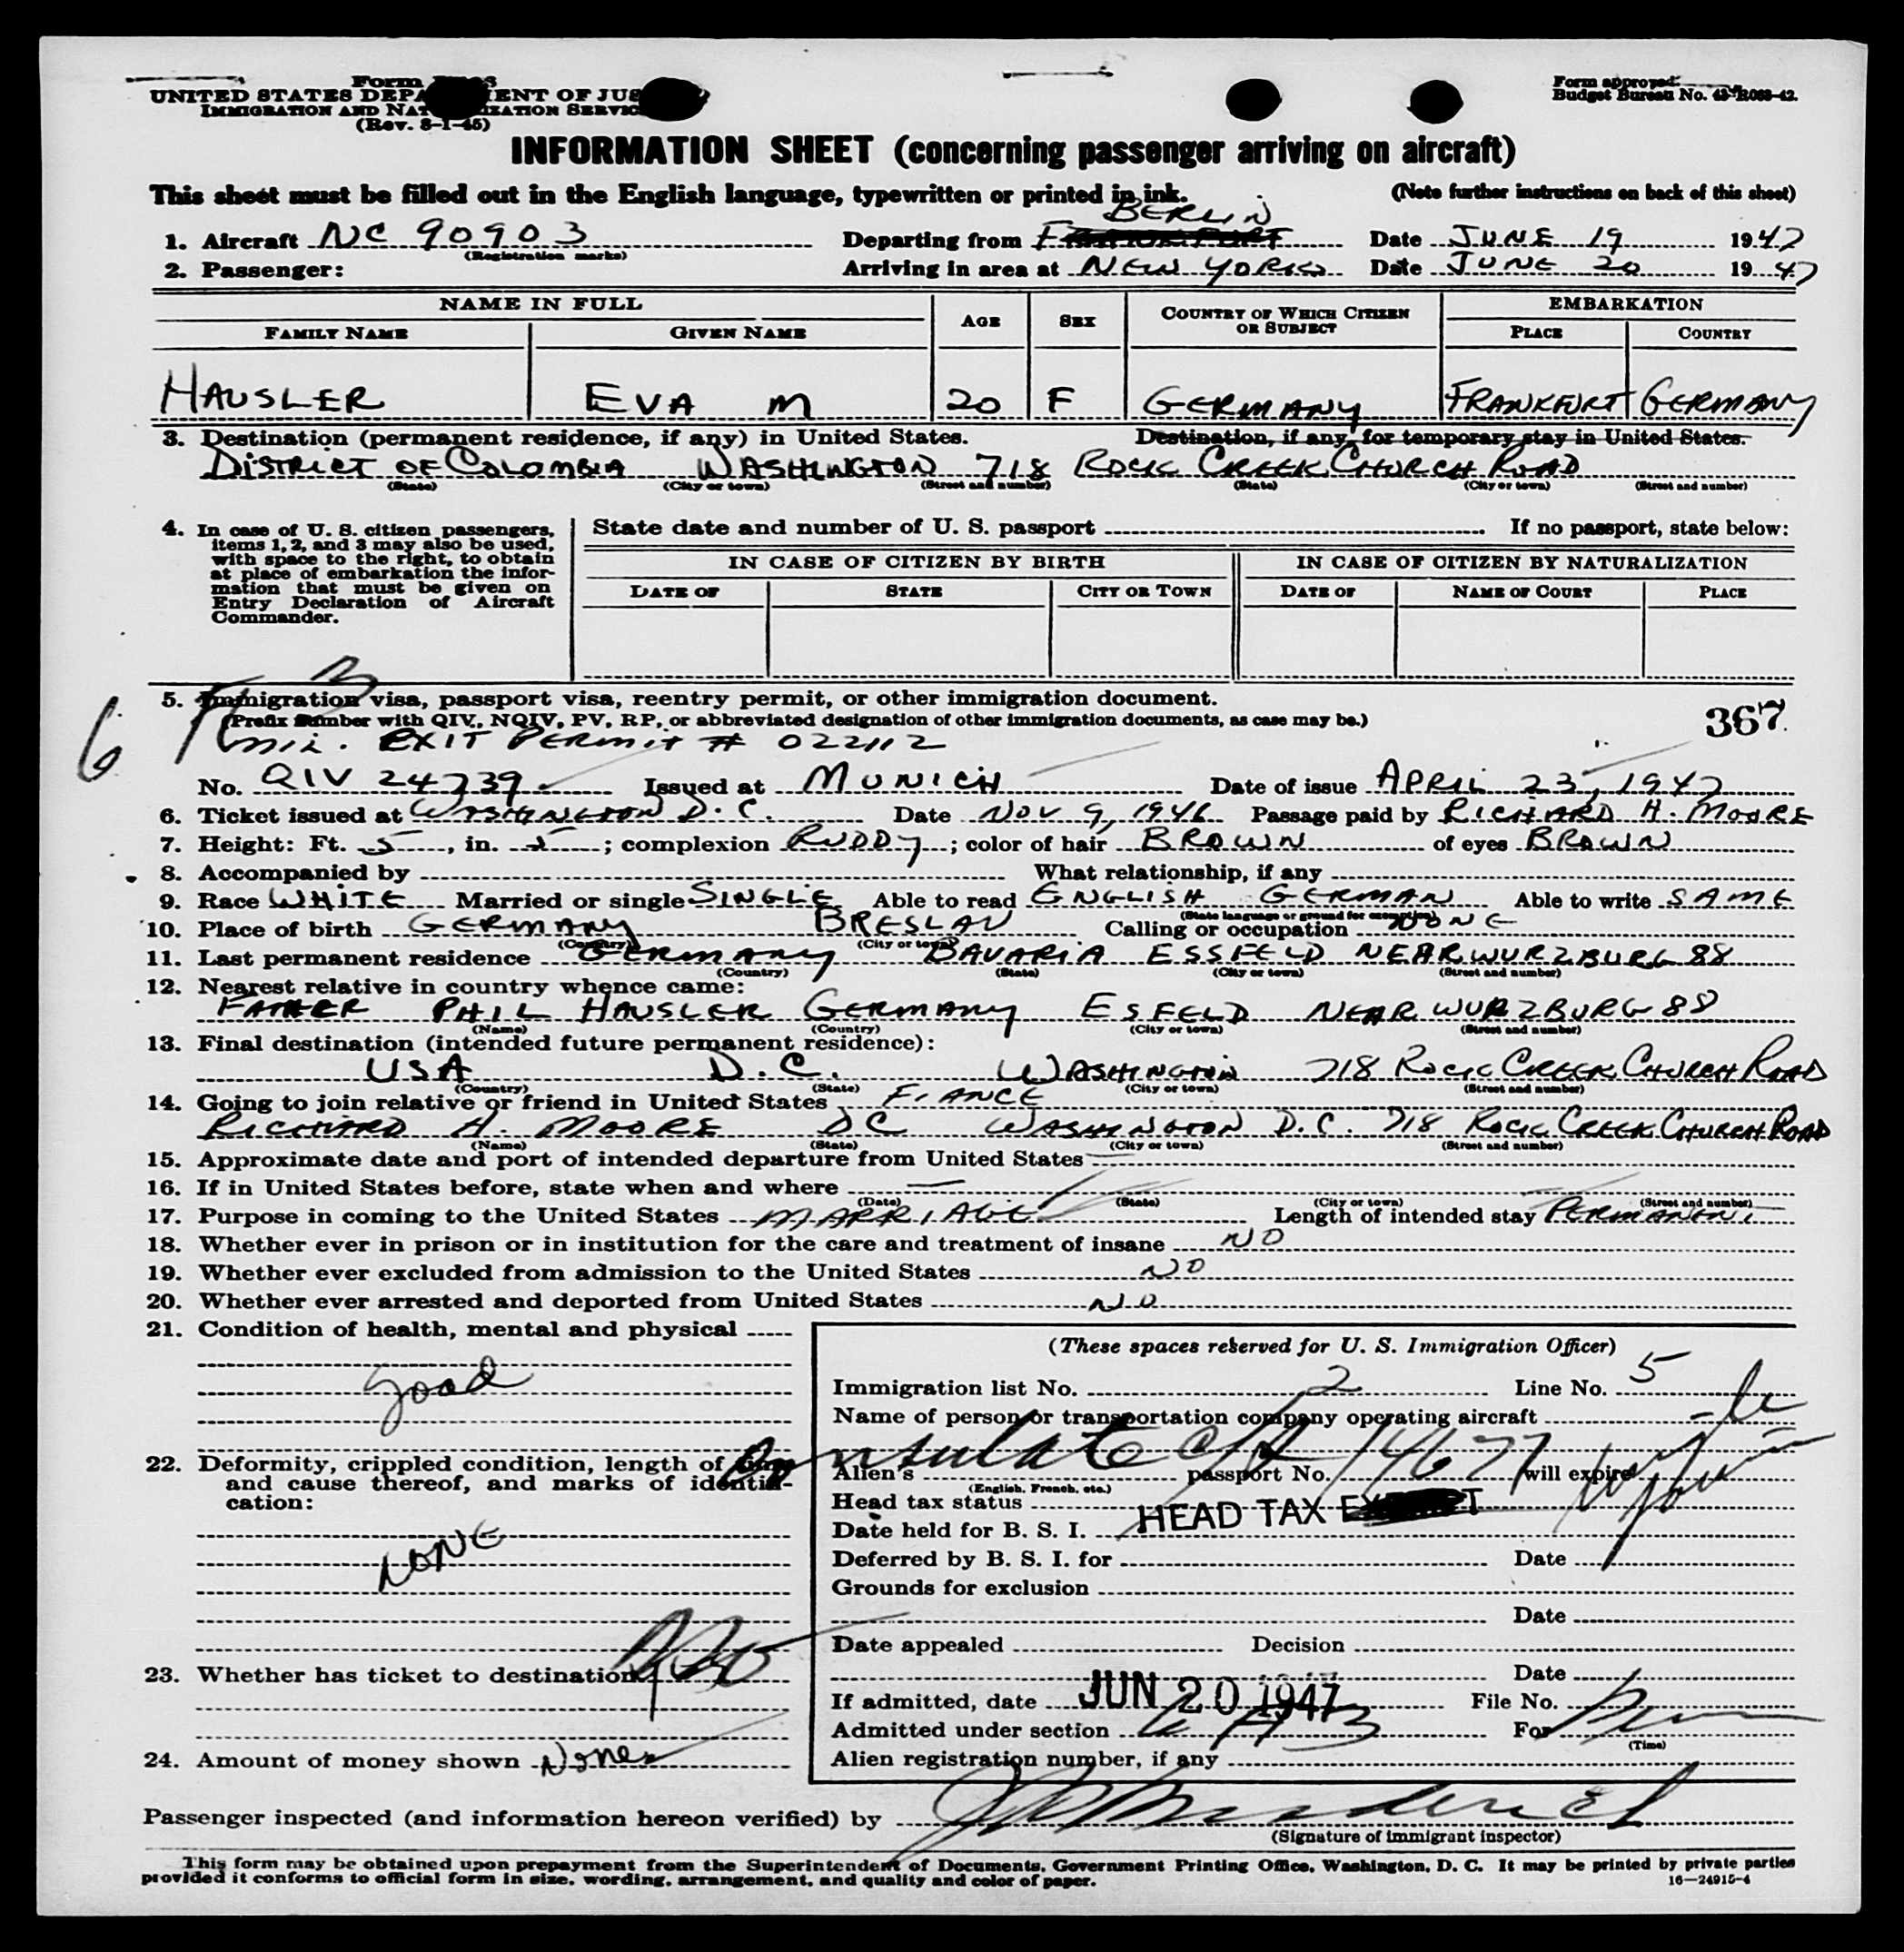 Form
UNITED STATES DEPA ENT OF JUS
IMMIGRATION AND NAT IZATION SERVIC
(Rev. 8-1-45)
Form approved.
Budget Bureau No. 43-R083-42.
INFORMATION SHEET (concerning passenger arriving on aircraft)
This sheet must be filled out in the English language, typewritten or printed in ink. (Note further instructions on back of this sheet)
BERLIN
1. Aircraft NC 90903 Departing from FRANKFURT Date JUNE 19 1947
(Registration marks)
2. Passenger: Arriving in area at NEW YORK Date JUNE 20 1947
NAME IN FULL AGE SEX COUNTRY OF WHICH CITIZEN OR SUBJECT EMBARKATION
FAMILY NAME GIVEN NAME PLACE COUNTRY
HAUSLER EVA M 20 F GERMANY FRANKFURT GERMANY
3. Destination (permanent residence, if any) in United States. Destination, if any, for temporary stay in United States.
DISTRICT OF COLOMBIA WASHINGTON 718 ROCK CREEK CHURCH ROAD
(State) (City or town) (Street and number) (State) (City or town) (Street and number)
4. In case of U. S. citizen passengers,
items 1, 2, and 3 may also be used,
with space to the right, to obtain
at place of embarkation the infor-
mation that must be given on
Entry Declaration of Aircraft
Commander.
State date and number of U. S. passport If no passport, state below:
IN CASE OF CITIZEN BY BIRTH IN CASE OF CITIZEN BY NATURALIZATION
DATE OF STATE CITY OR TOWN DATE OF NAME OF COURT PLACE
5. Immigration visa, passport visa, reentry permit, or other immigration document.
(Prefix number with QIV, NQIV, PV, RP, or abbreviated designation of other immigration documents, as case may be.)
367
6
MIL. EXIT PERMIT # 022112
No. QIV 24739 Issued at MUNICH Date of issue APRIL 23, 1947
6. Ticket issued at WASHINGTON D.C. Date NOV 9, 1946 Passage paid by RICHARD H. MOORE
7. Height: Ft. 5, in. 5; complexion RUDDY; color of hair BROWN of eyes BROWN
8. Accompanied by What relationship, if any
9. Race WHITE Married or single SINGLE Able to read ENGLISH GERMAN Able to write SAME
(State language or ground for exemption)
10. Place of birth GERMANY BRESLAU Calling or occupation NONE
(Country) (City or town)
11. Last permanent residence GERMANY BAVARIA ESSFELD NEAR WURZBURG 88
(Country) (State) (City or town) (Street and number)
12. Nearest relative in country whence came:
FATHER PHIL HAUSLER GERMANY ESFELD NEAR WURZBURG 88
(Name) (Country) (City or town) (Street and number)
13. Final destination (intended future permanent residence):
USA D.C. WASHINGTON 718 ROCK CREEK CHURCH ROAD
(Country) (State) (City or town) (Street and number)
14. Going to join relative or friend in United States FIANCE
RICHARD H. MOORE DC WASHINGTON D.C. 718 ROCK CREEK CHURCH ROAD
(Name) (State) (City or town) (Street and number)
15. Approximate date and port of intended departure from United States —
16. If in United States before, state when and where —
(Date) (State) (City or town) (Street and number)
17. Purpose in coming to the United States MARRIAGE Length of intended stay PERMANENT
18. Whether ever in prison or in institution for the care and treatment of insane NO
19. Whether ever excluded from admission to the United States NO
20. Whether ever arrested and deported from United States NO
21. Condition of health, mental and physical
Good
22. Deformity, crippled condition, length of time
and cause thereof, and marks of identifi-
cation:
NONE
23. Whether has ticket to destination
24. Amount of money shown None
(These spaces reserved for U. S. Immigration Officer)
Immigration list No. 2 Line No. 5
Name of person or transportation company operating aircraft
Consulate 14677
Alien's passport No. will expire
(English, French, etc.)
Head tax status
HEAD TAX EXEMPT
Date held for B. S. I.
Deferred by B. S. I. for Date
Grounds for exclusion
Date
Date appealed Decision
Date
If admitted, date JUN 20 1947 File No.
Admitted under section 6 A 3 For
(Time)
Alien registration number, if any
Passenger inspected (and information hereon verified) by
(Signature of immigrant inspector)
This form may be obtained upon prepayment from the Superintendent of Documents, Government Printing Office, Washington, D. C. It may be printed by private parties
provided it conforms to official form in size, wording, arrangement, and quality and color of paper.
16—24915-4